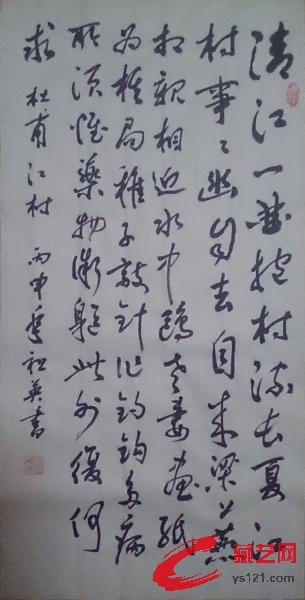 清江一曲抱村流长夏江
村事々幽自去自来梁上燕
相親相近水中鸥老妻画紙
为棋局稚子敲針作钓鈎多病
所須惟藥物微軀此外復何
求 杜甫江村 丙申 英書
藏艺网
ys121.com